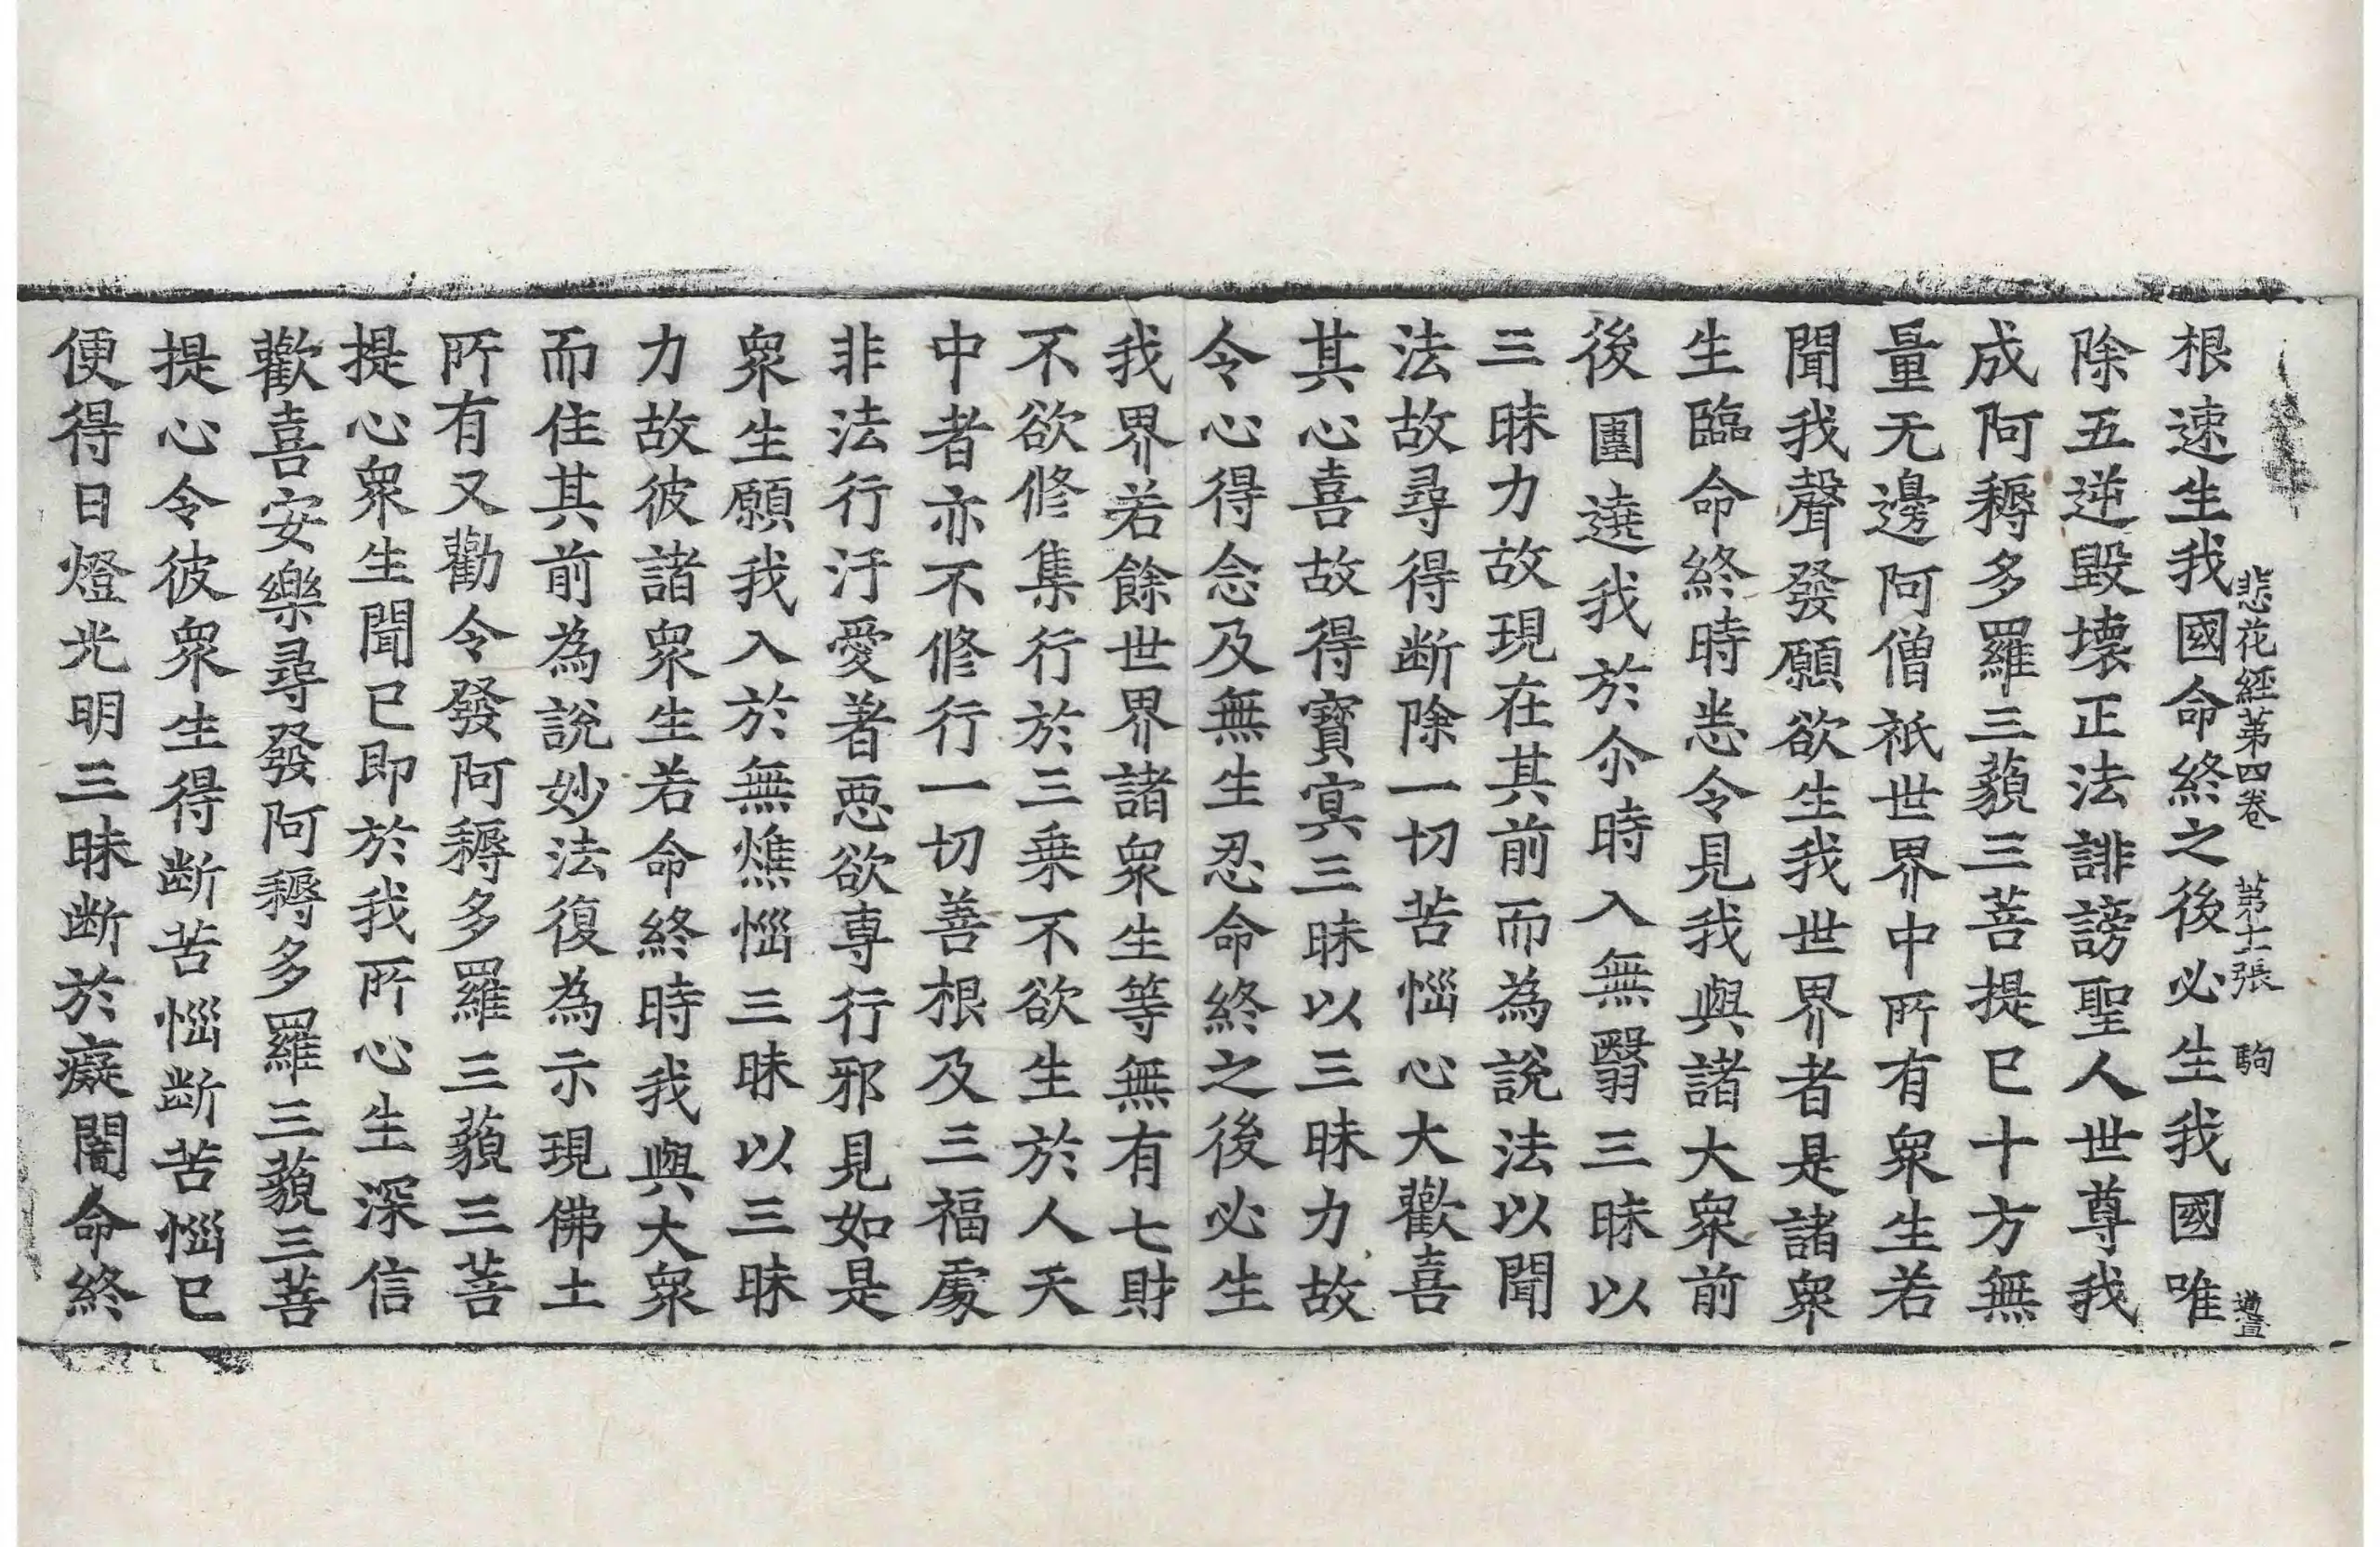 悲花經第四卷 第十二張 駒
根速生我國命終之後必生我國唯
除五逆毀壞正法誹謗聖人世尊我
成阿耨多羅三藐三菩提已十方無
量无邊阿僧祇世界中所有衆生若
聞我聲發願欲生我世界者是諸衆
生臨命終時悉令見我與諸大衆前
後圍遶我於尒時入無翳三昧以
三昧力故現在其前而為說法以聞
法故尋得断除一切苦惱心大歡喜
其心喜故得寶寘三昧以三昧力故
令心得念及無生忍命終之後必生
我界若餘世界諸衆生等無有七財
不欲修集行於三乗不欲生於人天
中者亦不修行一切善根及三福處
非法行汙愛著惡欲専行邪見如是
衆生願我入於無燋惱三昧以三昧
力故彼諸衆生若命終時我與大衆
而住其前為說妙法復為示現佛土
所有又勸令發阿耨多羅三藐三菩
提心衆生聞已即於我所心生深信
歡喜安樂尋發阿耨多羅三藐三菩
提心令彼衆生得断苦惱断苦惱已
便得日燈光明三昧断於癡闇命終